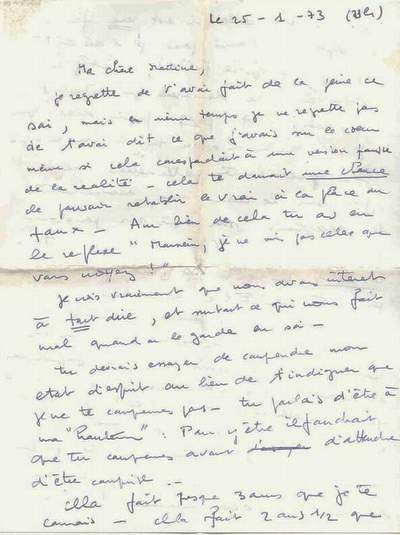 Le 25-1-73 (23h)
Ma chère Martine,
je regrette de t'avoir fait de la peine ce
soir, mais en même temps je ne regrette pas
de t'avoir dit ce que j'avais sur le coeur
même si cela correspondait à une version fausse
de la réalité - cela te donnait une chance
de pouvoir rétablir le vrai à la place du
faux - Au lieu de cela tu as eu
le reflexe " je ne suis pas celle que
vous croyez !"
Je crois vraiment que nous avons interet
à tout dire, et surtout ce qui nous fait
mal quand on le garde en soi -
Tu devrais essayer de comprendre mon
etat d'esprit au lieu de t'indigner que
je ne te comprenne pas - tu parlais d'être à
ma "hauteur" : Pour y être il faudrait
que tu comprennes avant d'attendre
d'être comprise --
Cela fait presque 3 ans que je te
connais - Cela fait 2 ans 1/2 que